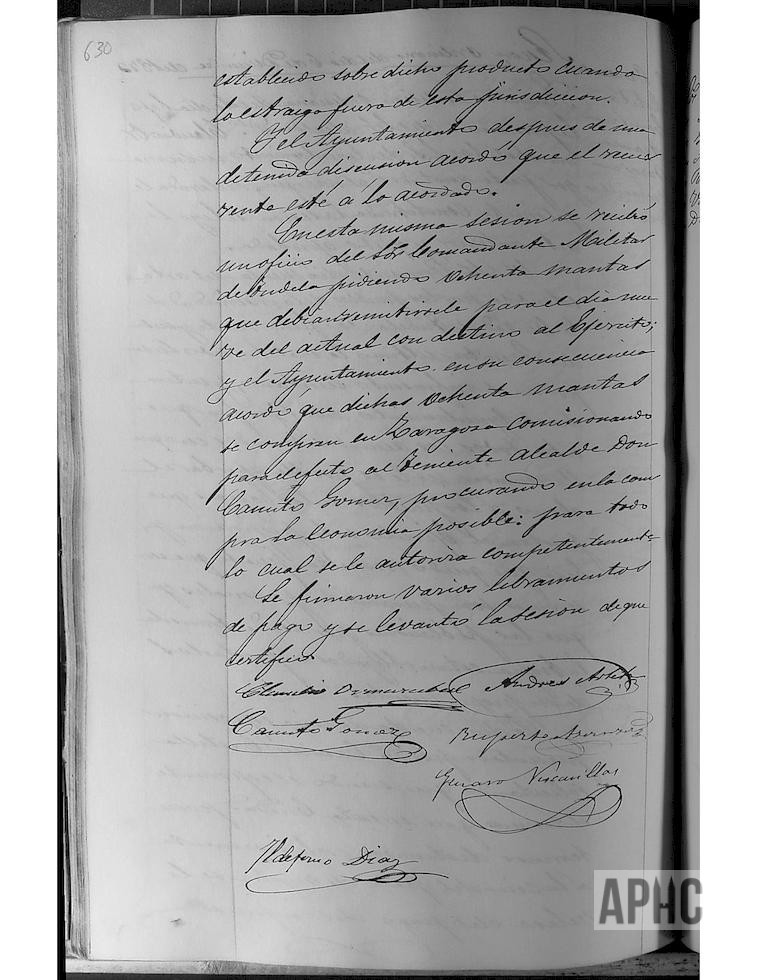 630
establecido sobre dicho producto cuando
lo estraiga fuera de esta jurisdiccion.
Y el Ayuntamiento despues de una
detenida discusion acordó que el recur
rente esté á lo acordado.
En esta misma sesion se recibió
un oficio del Sor Comandante Militar
de Tudela pidiendo ochenta mantas
que debian remitirsele para el dia nue
ve del actual con destino al Ejército;
y el Ayuntamiento en su consecuencia
acordó que dichas ochenta mantas
se compren en Zaragoza comisionando
para el efecto al Teniente Alcalde Don
Canuto Gomez, procurando en la com
pra la economia posible: para todo
lo cual se le autoriza competentemente
Se firmaron varios libramientos
de pago y se levantó la sesion de que
certifico.
Andres
Canuto Gomez
Ruperto
Genaro
Ildefonso Diaz
APHC